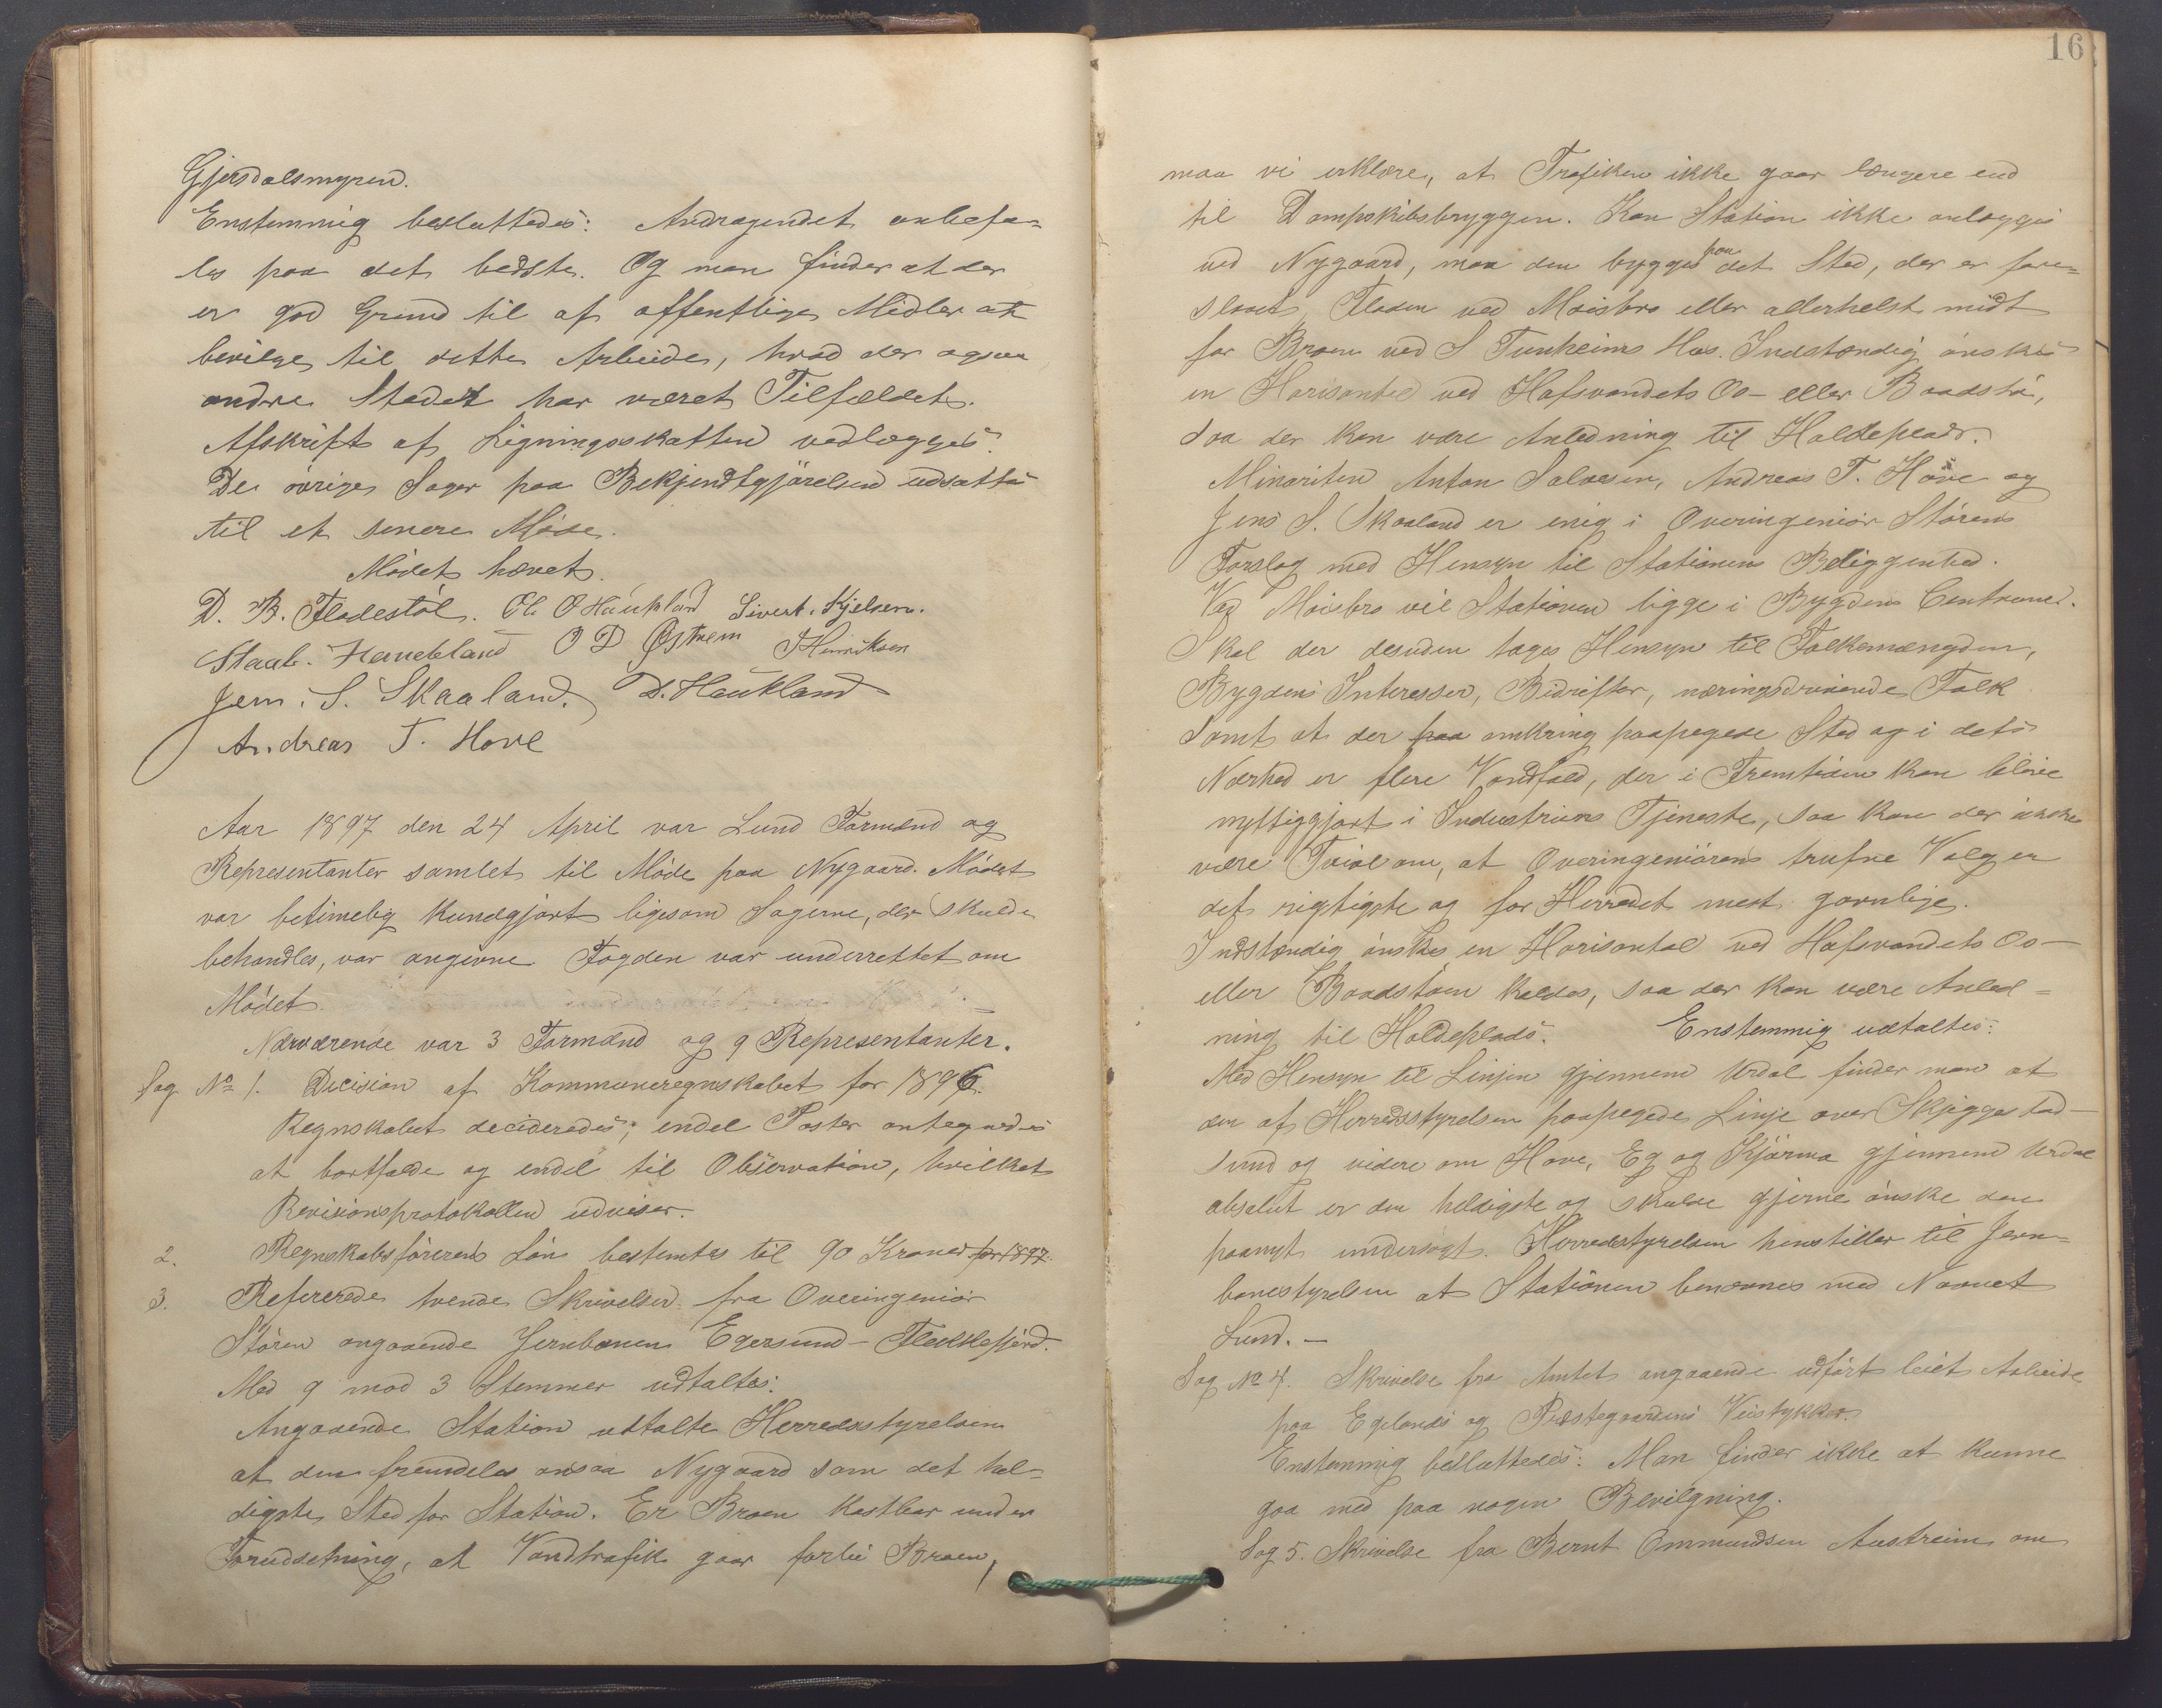 Gjersdalsmyren.
Enstemmig besluttedes: Andragendet anbefa-
les paa det bedste. Og man finder at der
er god Grund til af offentlige Midler at
bevilge til dette Arbeide, hvad der ogsaa
andre Steder har været Tilfældet.
Afskrift af Ligningsskatten vedlægges.
De øvrige Sager paa Bekjendtgjørelsen udsattes
til et senere Møde.
Mødet hævet.
D. B. Flodestøl. Ole O Haukland Sivert Kjelsen.
Staale Haukland O D Østrem T Henriksen
Jens. S. Skaaland. D. Haukland
Andreas T. Hove
Aar 1897 den 24 April var Lund Formænd og
Representanter samlet til Møde paa Nygaard. Mødet
var betimelig kundgjort ligesom Sagerne, der skulde
behandles, var angivne Fogden var underrettet om
Mødet.
Nærværende var 3 Formænd og 9 Representanter.
Sag No 1. Decision af Kommuneregnskabet for 1896.
Regnskabet decideredes; endel Poster antegnedes
at bortfalde og endel til Observation, hvilket
Revisionsprotokollen udviser.
2. Regnskabsførerens Løn bestemtes til 90 Kroner for 1897.
3. Refererede tvende Skrivelser fra Overingeniør
Støren angaaende Jernbanen Egersund-Flekkefjord.
Med 9 mod 3 Stemmer udtaltes:
Angaaende Station udtalte Herredsstyrelsen
at den fremdeles ansaa Nygaard som det hel-
digste Sted for Station. Er Broen kostbar under
Forudsetning, at Vandtrafik gaar forbi Broen,
16
maa vi erklære, at Trafiken ikke gaar længere end
til Dampskibsbryggen. Kan Station ikke anlægges
ved Nygaard, maa den bygges paa det Sted, der er fore-
slaaet, Floden ved Moisbro eller allerhelst midt
for Broen ved S Tunheims Hus. Indstændig ønskes
en Horisontal ved Hafsvandets Os- eller Baadstø,
saa der kan være Anledning til Holdeplads.
Minoriten Anton Salvesen, Andreas T. Hove og
Jens S. Skaaland er enig i Overingeniør Størens
Forslag med Hensyn til Stationens Beliggenhed.
Ved Moisbro vil Stationen ligge i Bygdens Centrum.
Skal der desuden tages Hensyn til Folkemængden,
Bygdens Interesser, Bedrifter, næringsdrivende Folk
samt at der paa omkring paapegede Sted og i dets
Nærhed er flere Vandfald, der i Fremtiden kan blive
nyttiggjort i Industriens Tjeneste, saa kan der ikke
være Tvivl om, at Overingeniørens trufne Valg er
det rigtigste og for Herredet mest gavnlige.
Indstændig ønskes en Horisontal ved Hafsvandets Os-
eller Baadstøen kaldes, saa der kan være Anled-
ning til Holdeplads. Enstemmig udtaltes:
Med Hensyn til Linjen gjennem Urdal finder man at
den af Herredsstyrelsen paapegede Linje over Skjeggestad-
sund og videre om Hove, Eg og Kjørma gjennem Urdal
absolut er den heldigste og skulde gjerne ønske den
paanyt undersøgt. Herredsstyrelsen henstiller til Jern-
banestyrelsen at Stationen benævnes med Navnet
Lund. -
Sag No 4. Skrivelse fra Amtet angaaende udført leiet Arbeide
paa Egelands og Præstegaardens Veistykker.
Enstemmig besluttedes: Man finder ikke at kunne
gaa med paa nogen Bevilgning.
Sag 5. Skrivelse fra Bernt Ommundsen Austreim om